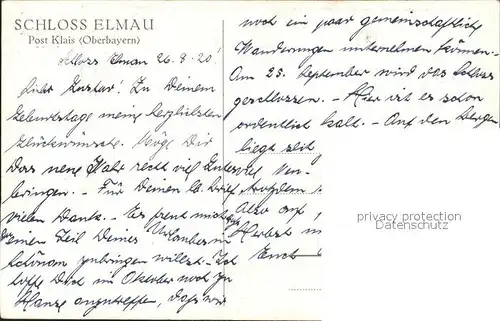 SCHLOSS ELMAU
Post Klais (Oberbayern)
Schloss Elmau 26.8.20!
Lieber Gustav! Zu Deinem
Geburtstage meine herzlichsten
Glückwünsche. Möge Dir
Das neue Jahr recht viel Gutes
bringen. - Für Deinen lb. Brief
vielen Dank. - Es freut mich, dass
Deinen Teil Deines Urlaubes in
Schönau zubringen willst. Ich
hoffe Dich im Oktober noch zu
Hause anzutreffen, dass wir
noch ein paar gemeinschaftliche
Wanderungen unternehmen können. -
Am 25. September wird das Schloss
geschlossen. - Hier ist es schon
ordentlich kalt. - Auf den Bergen
liegt seit
trotzdem
Also auf
Herbst
Euch
privacy protection
Datenschutz